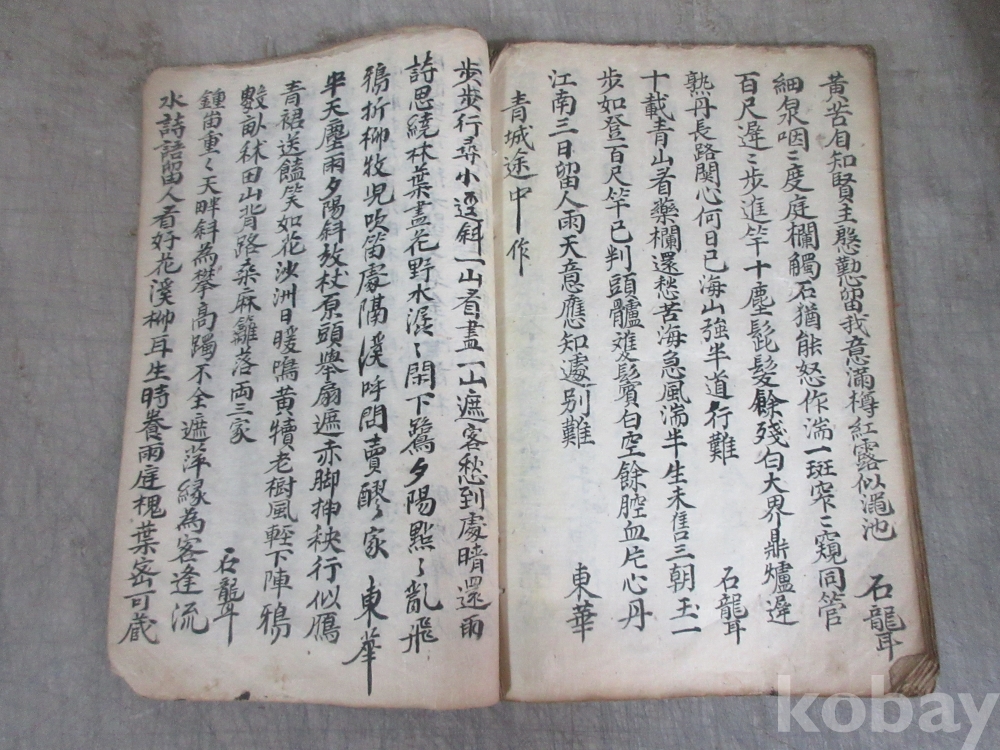 黃苦自知賢主慇懃留我意滿樽紅露似澠池 石聾
細泉咽〻度庭欄觸石猶能怒作湍一斑窄〻窺同管
百尺遲〻步進竿十塵髭髮餘殘白大界鼎爐遲
熟丹長路関心何日已海山強半道行難 石聾
十載青山看藥欄還愁苦海急風湍半生未售三朝玉一
步如登百尺竿已判頭髗難髮鬢白空餘腔血片心丹
江南三日留人雨天意應知處別難 東華
青城途中作
步步行尋小逕斜一山看盡一山遮客愁到處晴還雨
詩思繞林葉盡花野水混〻閑下鷺夕陽點〻亂飛
鴉折柳牧児吹笛處隔溪呼問賣醪家 東華
半天塵雨夕陽斜放杖原頭擧扇遮赤脚揷秧行似鴈
青裙送饁笑如花沙洲日暖鳴黃犢老樹風輕下陣鴉
數畝秫田山背路桑麻籬落両三家 石聾
鍾峀重〻天畔斜為攀高躅不全遮萍縁為客逢流
水詩語留人看好花溪柳耳生時養雨庭槐葉密可蔵
kobay